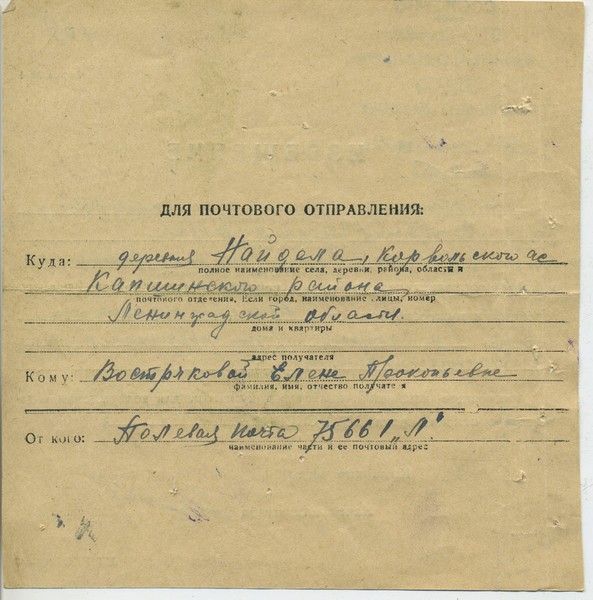 ДЛЯ ПОЧТОВОГО ОТПРАВЛЕНИЯ:
Куда: деревня Найдала, Корвольского ас
полное наименование села, деревни, района, области и
Капшинского района
почтового отделения, Если город, наименование лицы, номер
Ленинградской области.
дома и квартиры
адрес получателя
Кому: Востряковой Елене Прокопьевне
фамилия, имя, отчество получате я
От кого: Полевая почта 75661 „Л"
наименование части и ее почтовый адрес